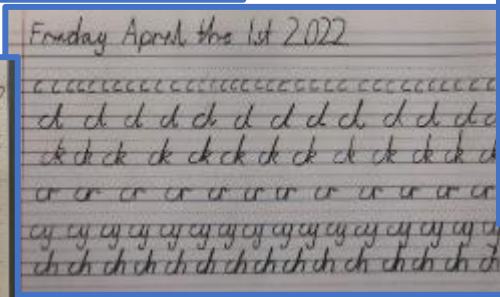 Friday April the 1st 2022
cccccccccccccccccccccccc cccccccccc
cl cl cl cl cl cl cl cl cl cl cl cl c
ck ck ck ck ck ck ck ck ck ck ck ck ck
cr cr cr cr cr cr cr cr cr cr cr cr
cy cy cy cy cy cy cy cy cy cy cy cy cy cy cy cy
ch ch ch ch ch ch ch ch ch ch ch ch ch ch ch